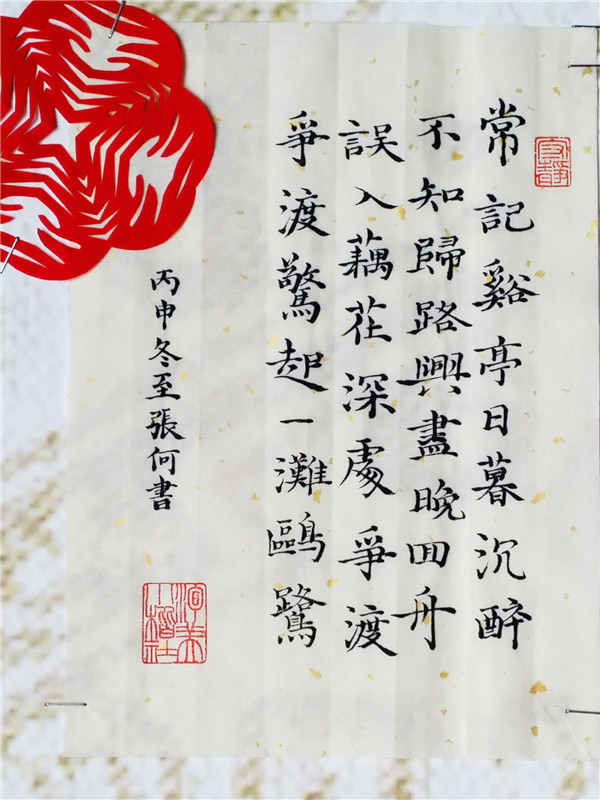 常記谿亭日暮沉醉
不知歸路興盡晚回舟
誤入藕花深處爭渡
爭渡驚起一灘鷗鷺
丙申冬至張何書